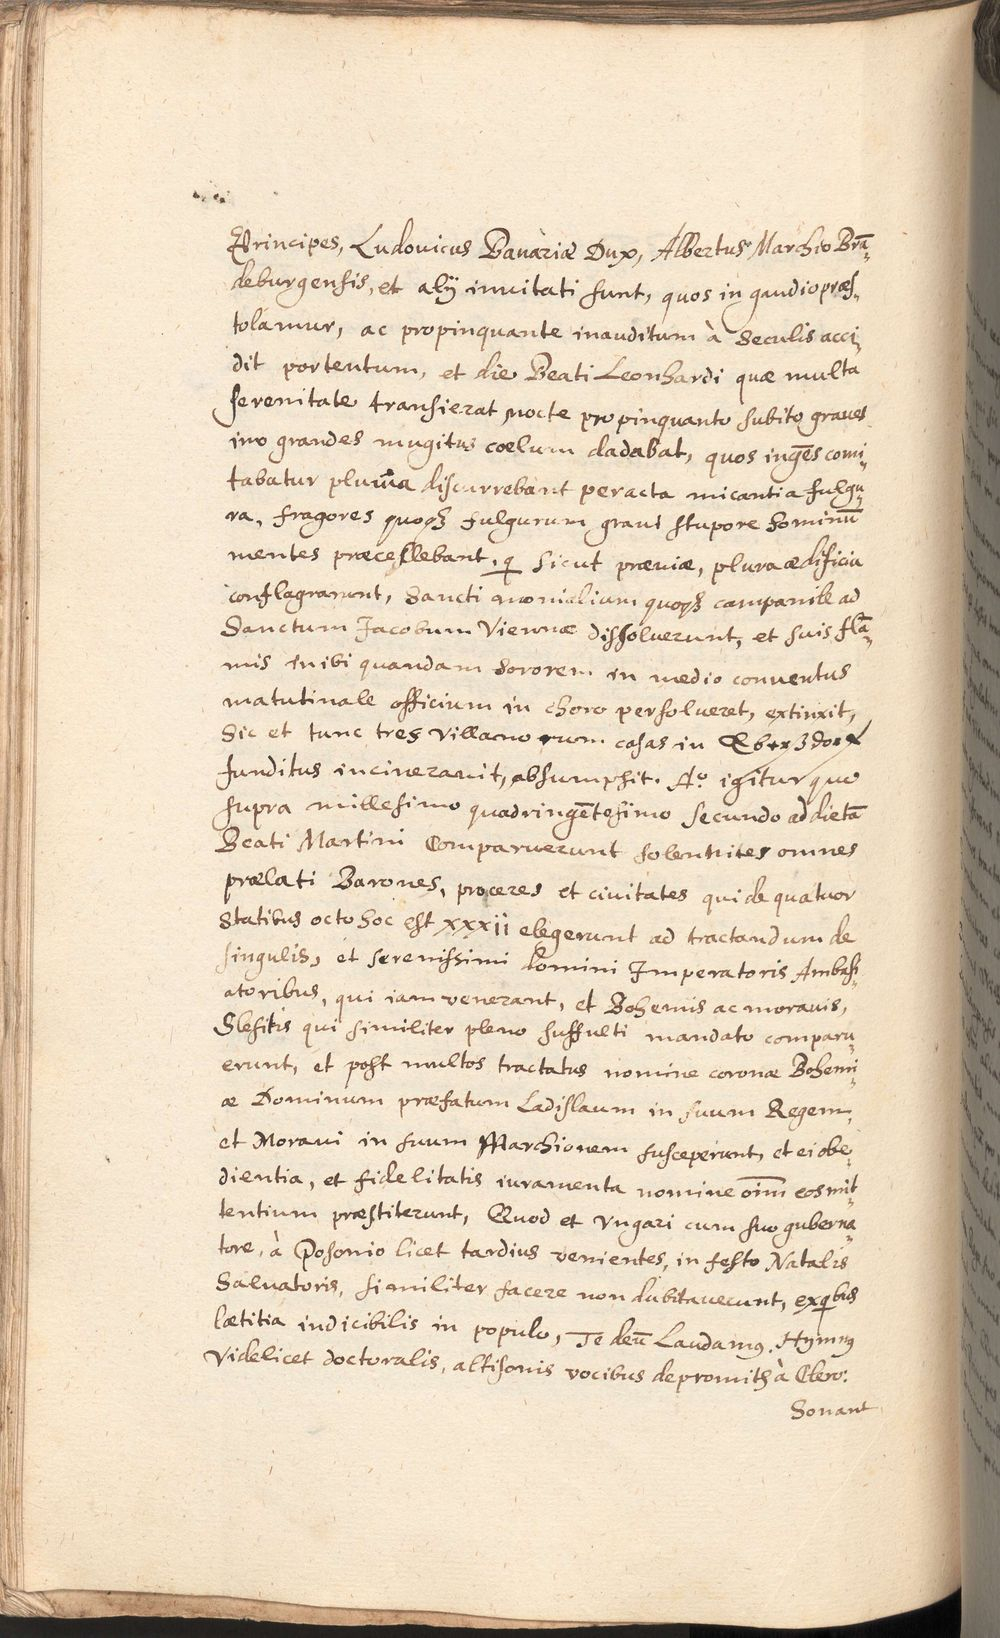 Principes, Ludouicus Bauariæ Dux, Albertus Marchio Brā-
deburgensis, et alÿ inuitati sunt, quos in gaudio præs-
tolamur, ac propinquante inauditum à Seculis acci-
dit portentum, et die Beati Leonhardi quæ multa
serenitate transierat, nocte propinquante subito graues
imo grandes mugitus coelum dadabat, quos ingēs comi-
tabatur pluuia discurrebant peracta micantia fulgu-
ra, fragores quoqꝫ fulgurum graui stupore hominū
mentes præcellebant, q sicut præuiæ, plura ædificia
conflagrarunt, Sancti monialium quoqꝫ campanile ad
Sanctum Jacobum Viennæ dissoluerunt, et suis flā-
mis inibi quandam Sororem in medio conuentus
matutinale officium in choro persolueret, extinxit,
Sic et tunc tres Villanorum casas in Eberzdorf
funditus incinerauit, absumpsit. Aº. igitur quo
supra millesimo quadringētesimo Secundo ad dietā
Beati Martini Comparuerunt solenniter omnes
prælati Barones, proceres et ciuitates qui de quatuor
Statibus octo hoc est xxxii elegerunt ad tractandum de
singulis, et serenissimi domini Imperatoris Ambass-
atoribus, qui iam venerant, et Bohemis ac morauis,
Slesitis qui similiter pleno suffulti mandato comparu-
erunt, et post multos tractatus nomine coronæ Bohemi-
æ Dominum præfatum Ladislaum in suum Regem,
et Moraui in suum Marchionem susceperunt, et ei obe-
dientia, et fidelitatis iuramenta nomine oīm eos mit-
tentium præstiterunt, Quod et Vngari cum suo guberna-
tore, à Posonio licet tardius venientes, in festo Natalis
Saluatoris, similiter facere non dubitauerunt, ex qbus
lætitia indicibilis in populo, Te deū Laudamꝰ. Hymnꝰ
Videlicet doctoralis, altisonis vocibus depromitꝫ à Clero:
Sonant